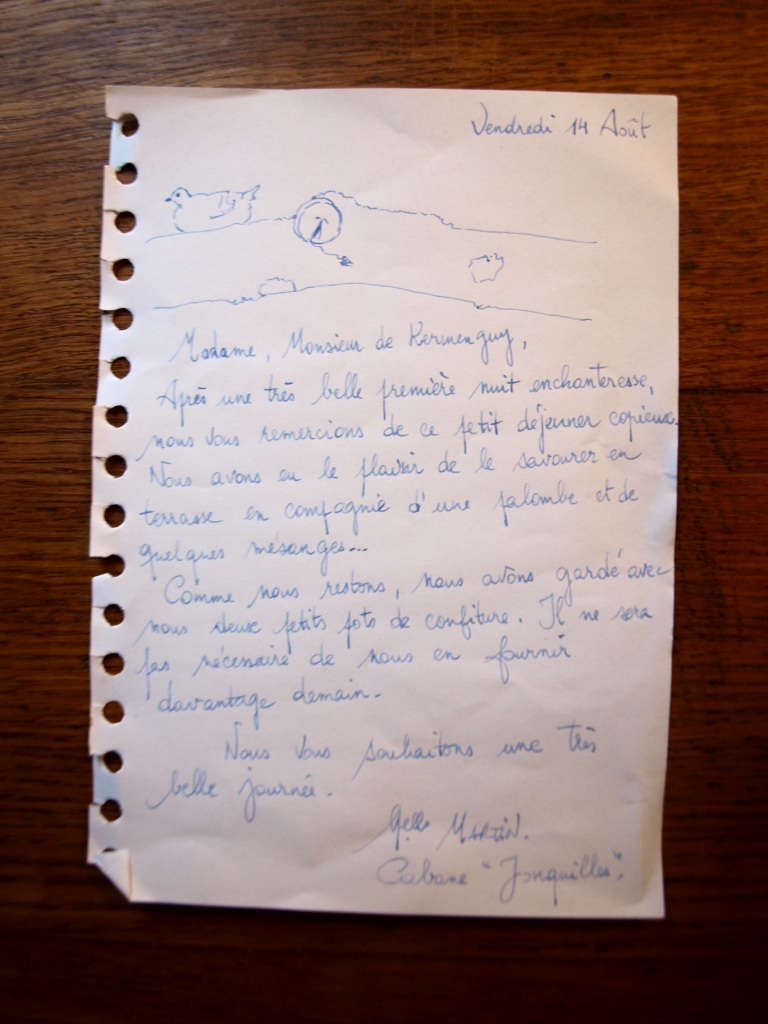 Vendredi 14 Août
Madame, Monsieur de Kermenguy,
Après une très belle première nuit enchanteresse,
nous vous remercions de ce petit déjeuner copieux.
Nous avons eu le plaisir de le savourer en
terrasse en compagnie d'une palombe et de
quelques mésanges...
Comme nous restons, nous avons gardé avec
nous deux petits pots de confiture. Il ne sera
pas nécessaire de nous en fournir
davantage demain.
Nous vous souhaitons une très
belle journée.
MARTIN.
Cabane "Jonquilles".